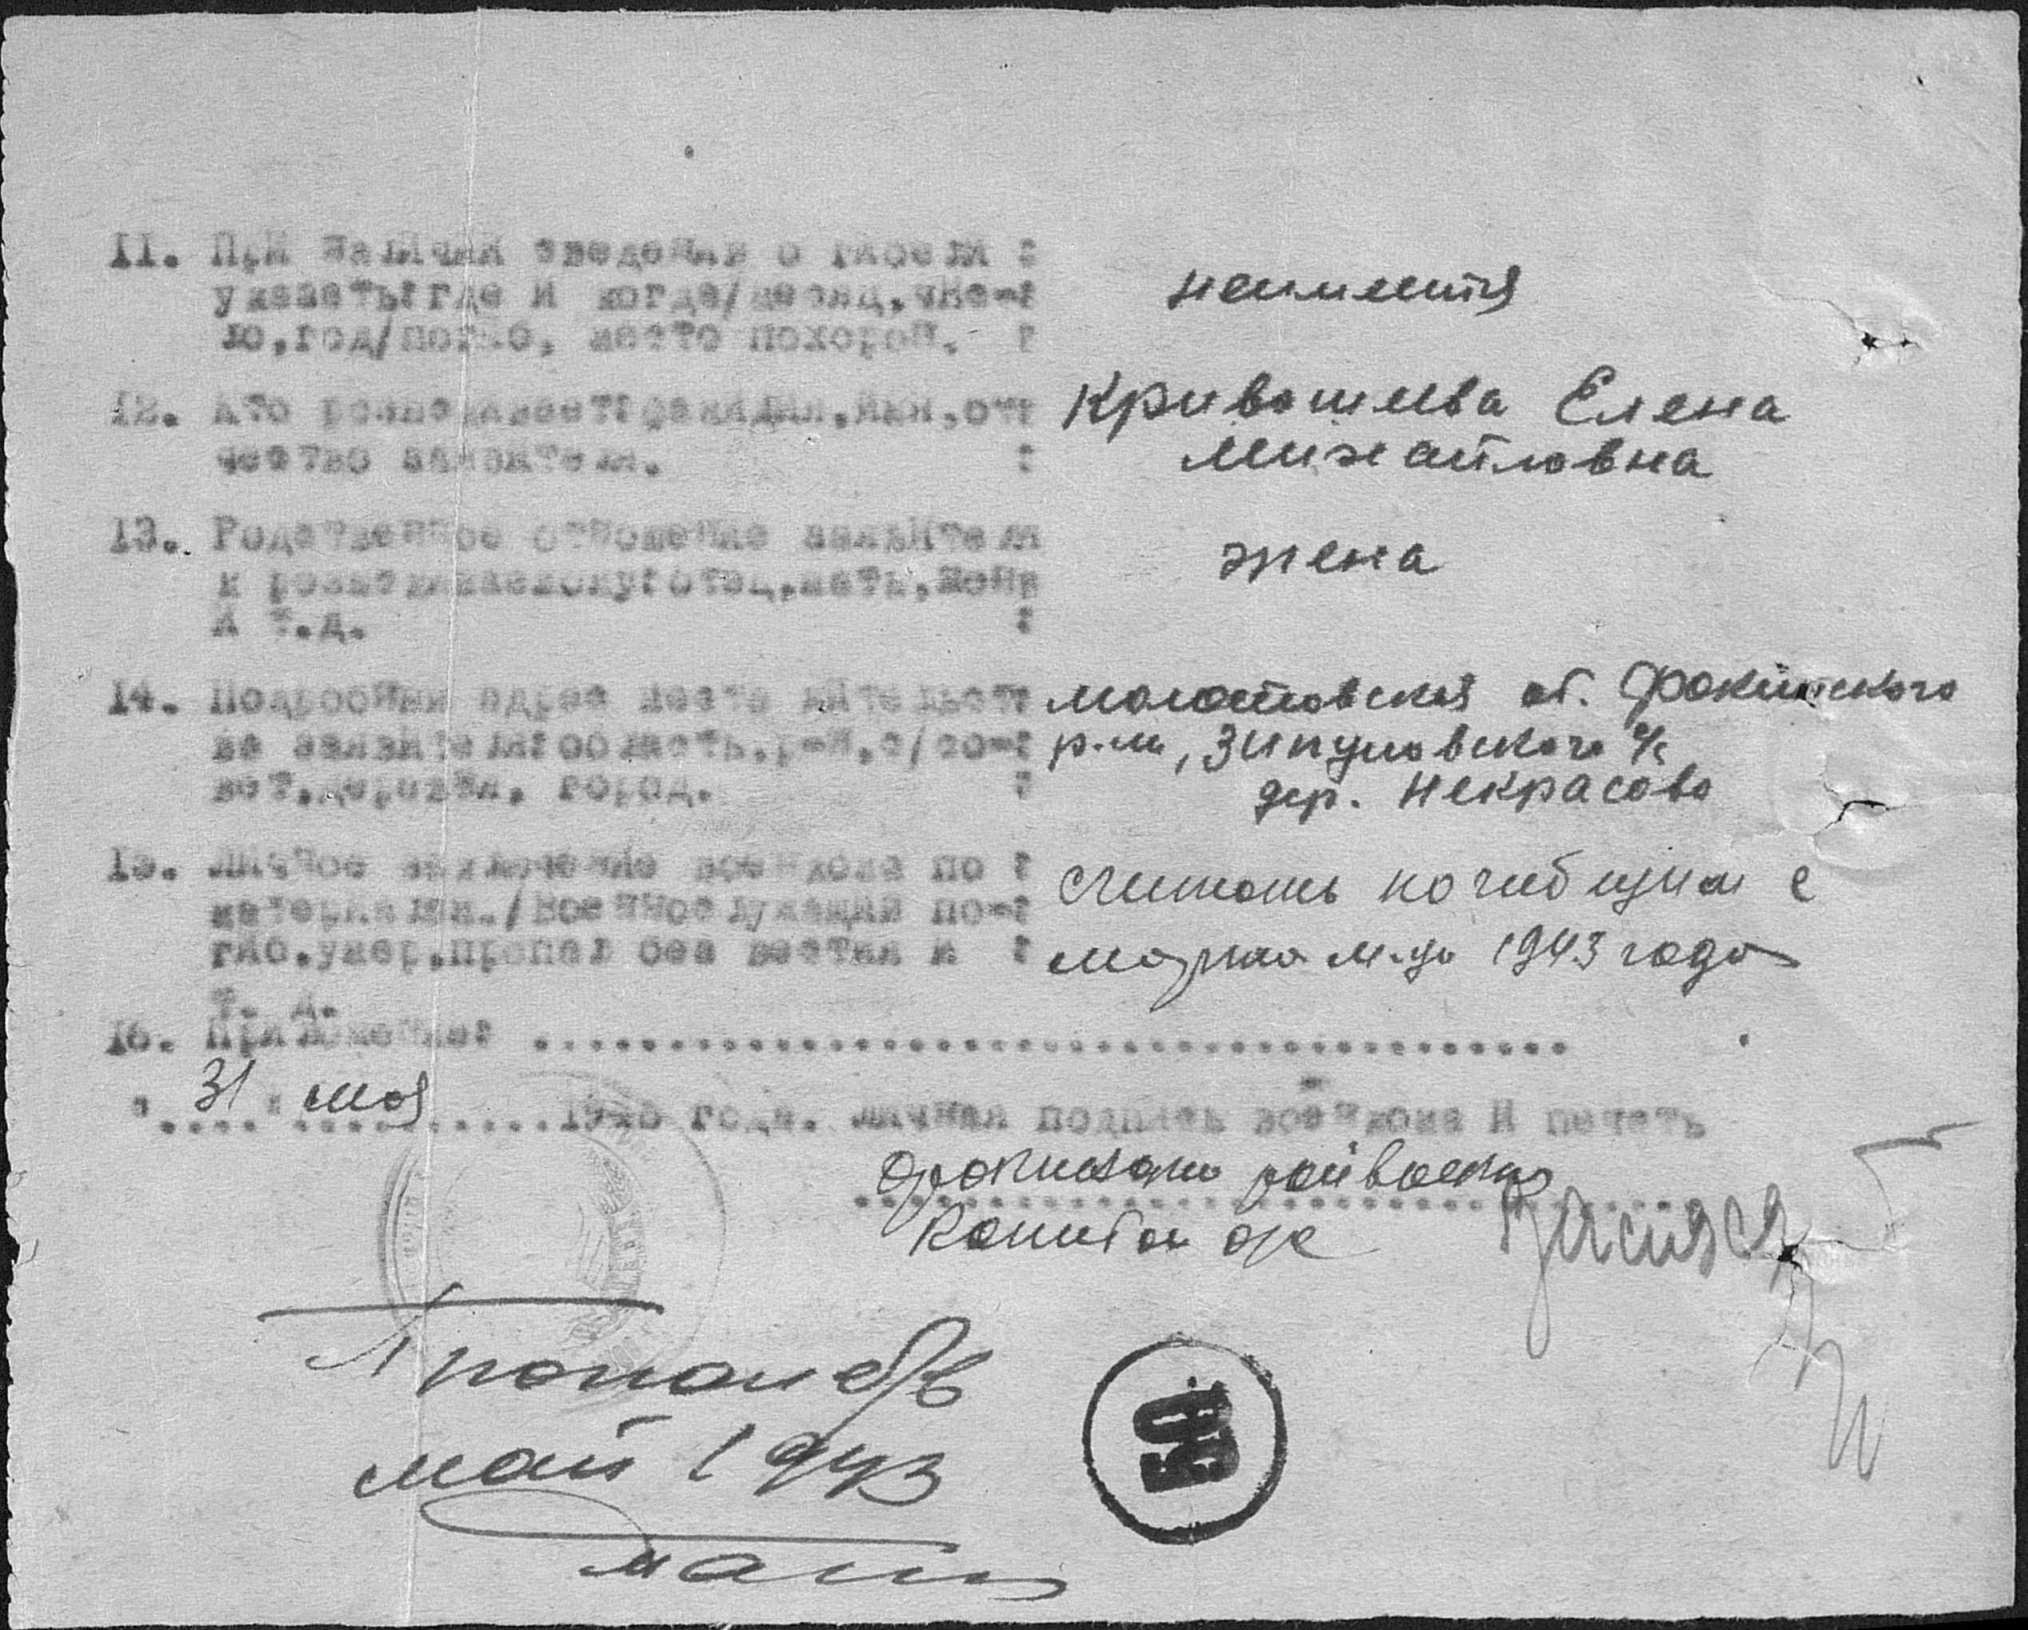 11. При наличии сведений о гибели :
указать: где и когда/месяц, чис-:
ло, год/погиб, место похорон. :
неимеится
12. Кто разыскивает: фамилия, имя, от:
чество заявителя. :
Кривошеева Елена
Михайловна
13. Родственное отношение заявителя
к разыскиваемому: отец, мать, жена
и т.д. :
жена
14. Подробный адрес места жительст:
ва заявителя: область, р-н, с/со-:
вет, деревня, город. :
Молотовская об. Фокинского
р-на, Зипуновского с/с
дер. Некрасово
15. Личное заключение военкома по :
материалам./Военнослужащий по-:
гиб, умер, пропал без вести и :
т. д.
считать погибшим с
марта м-ца 1943 года
16. Приложение: ......................................
"31" мая 1946 года. Личная подпись военкома и печать
Фокинский райвоенком
Капитан
Пропал б/в
май 1943
50